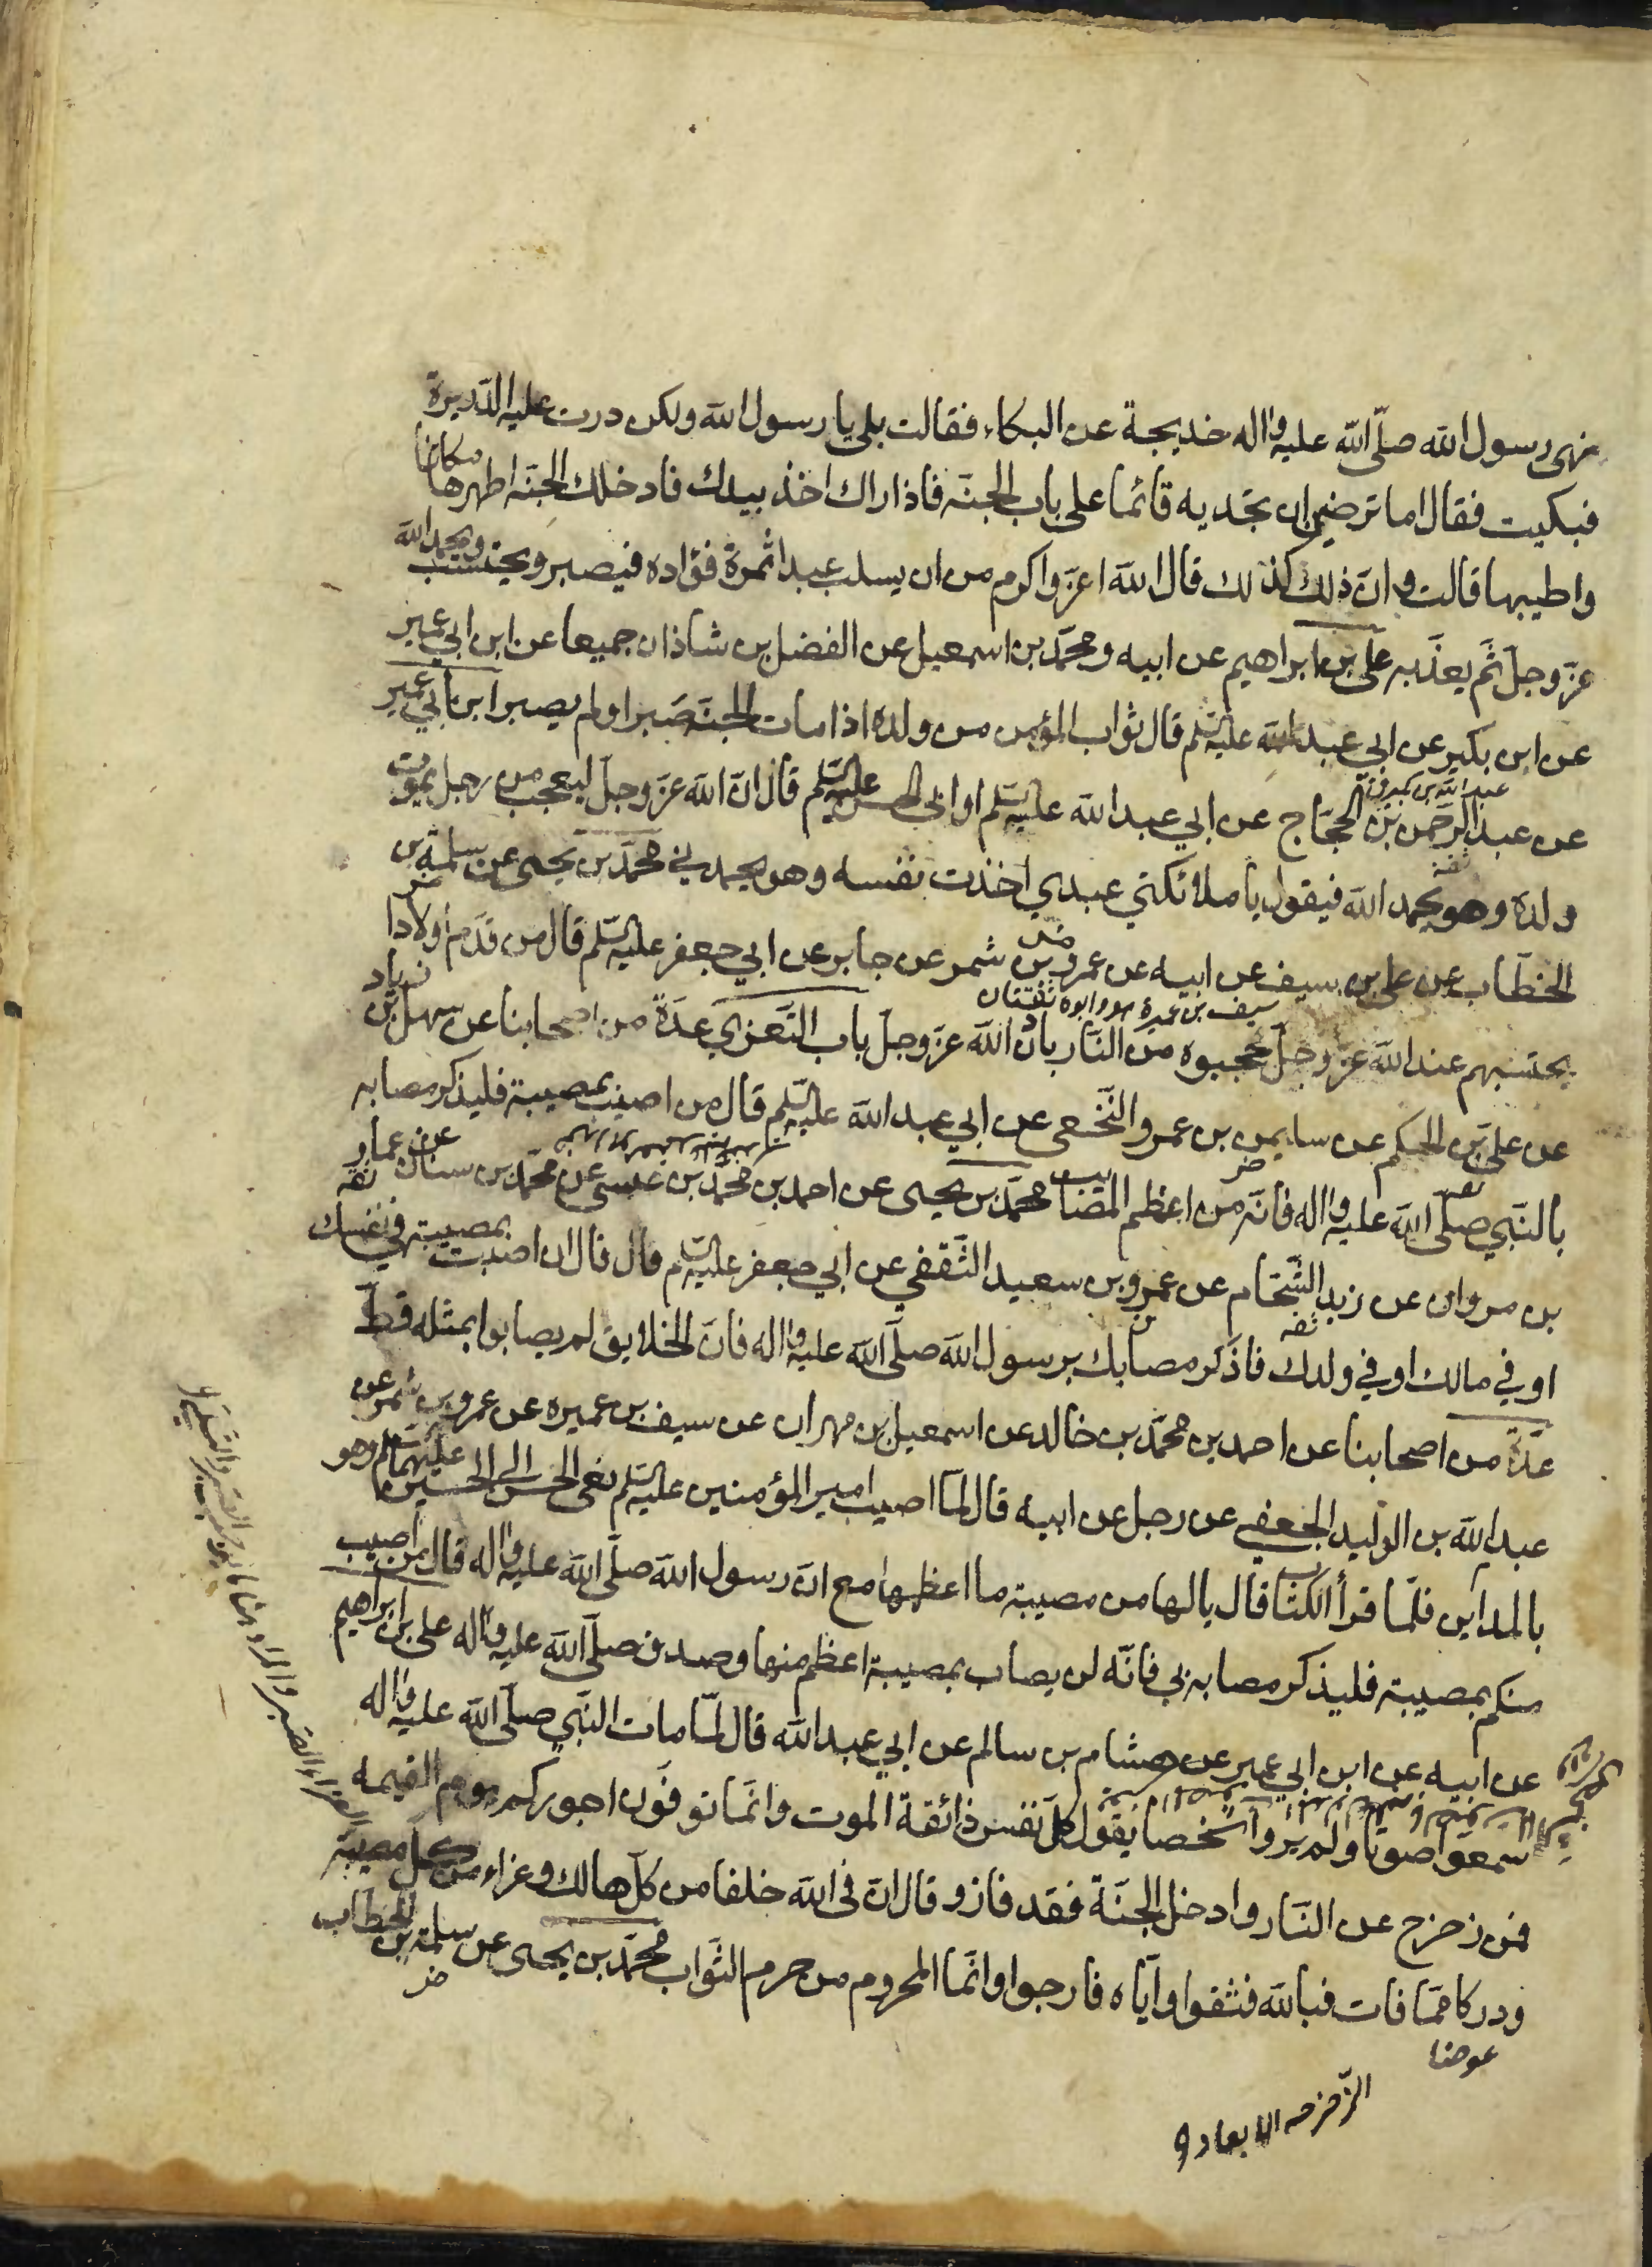 نهى رسول الله صلّى الله عليه واله خديجة عن البكاء فقالت بلى يا رسول الله ولكن درت عليه الدريرة
فبكيت فقال اما ترضين ان تجديه قائما على باب الجنّة فاذا راك اخذ بيدك فادخلك الجنّة اطهرها مكانا
واطيبها قالت وانّ ذلك كذلك قال الله اعزّ واكرم من ان يسلب عبدا ثمرة فؤاده فيصبر ويحتسب ويحمد الله
عزّ وجلّ ثمّ يعذّبه علي بن ابراهيم عن ابيه ومحمّد بن اسمعيل عن الفضل بن شاذان جميعا عن ابن ابي عمير
عن ابن بكير عن ابي عبد الله عليه السّلم قال ثواب المؤمن من ولده اذا مات الجنّة صبر او لم يصبر ابن ابي عمير
عن عبد الرّحمن بن الحجّاج عن ابي عبد الله عليه السّلم او ابي الحسن عليه السّلم قال انّ الله عزّ وجلّ ليعجب من رجل يموت
ولده وهو يحمد الله فيقول يا ملائكتي عبدي اخذت نفسه وهو يحمدني محمّد بن يحيى عن سلمة بن
الخطّاب عن علي بن سيف عن ابيه عن عمرو بن شمر عن جابر عن ابي جعفر عليه السّلم قال من قدّم اولادا
سيف بن عميرة هو وابوه ثقتان
يحتسبهم عند الله عزّ وجلّ حجبوه من النّار باذن الله عزّ وجلّ باب التّعزّي عدّة من اصحابنا عن سهل بن زياد
عن علي بن الحكم عن سليمن بن عمرو النّخعي عن ابي عبد الله عليه السّلم قال من اصيب بمصيبة فليذكر مصابه
بالنّبي صلّى الله عليه واله فانّه من اعظم المصائب محمّد بن يحيى عن احمد بن محمّد بن عيسى عن محمّد بن سنان عن عمار
بن مروان عن زيد الشّحّام عن عمرو بن سعيد الثّقفي عن ابي جعفر عليه السّلم قال قال ان اصبت بمصيبة في نفسك
او في مالك او في ولدك فاذكر مصابك برسول الله صلّى الله عليه واله فانّ الخلايق لم يصابوا بمثله قطّ
عدّة من اصحابنا عن احمد بن محمّد بن خالد عن اسمعيل بن مهران عن سيف بن عميره عن عمرو بن شمر عن
عبد الله بن الوليد الجعفي عن رجل عن ابيه قال لمّا اصيب امير المؤمنين عليه السّلم نعى الحسن الى الحسين عليهما السّلم وهو
بالمداين فلمّا قرأ الكتاب قال يا لها من مصيبة ما اعظمها مع انّ رسول الله صلّى الله عليه واله قال من اصيب
منكم بمصيبة فليذكر مصابه بي فانّه لن يصاب بمصيبة اعظم منها وصدق صلّى الله عليه واله علي بن ابراهيم
عن ابيه عن ابن ابي عمير عن هشام بن سالم عن ابي عبد الله قال لمّا مات النّبي صلّى الله عليه واله
سمعوا صوتا ولم يروا شخصا يقول كلّ نفس ذائقة الموت وانّما توفّون اجوركم يوم القيمه
فمن زحزح عن النّار وادخل الجنّة فقد فاز وقال انّ في الله خلفا من كلّ هالك وعزاء من كلّ مصيبة
ودركا ممّا فات فبالله فثقوا وايّاه فارجوا وانّما المحروم من حرم الثّواب محمّد بن يحيى عن سلمة بن الخطّاب
عوضا
الزحزحه الابعاد